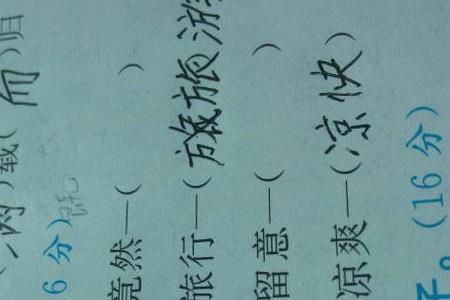 (满)载(而)归
6 分)
竟然—( )
旅行—(旅游
留意—( )
凉爽—(凉快)
。(16 分)